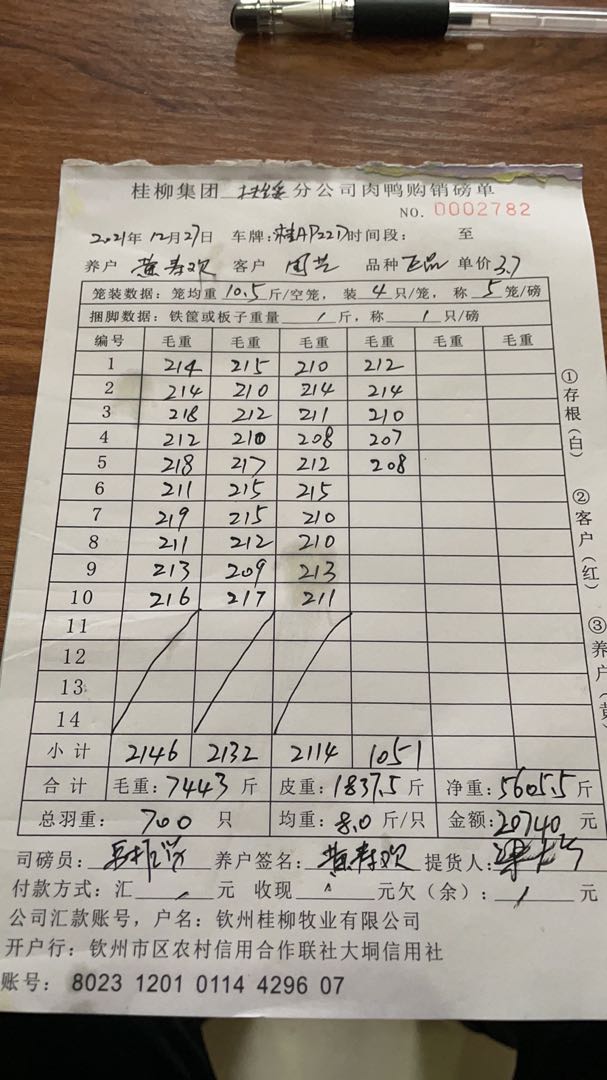 桂柳集团 扶绥 分公司肉鸭购销磅单
NO. 0002782
2021年12月27日 车牌: 时间段: 至
养户 黄寿欢 客户 周兰 品种 正品 单价3.7
笼装数据: 笼均重 10.5 斤/空笼, 装 4 只/笼, 称 5 笼/磅
捆脚数据: 铁筐或板子重量 / 斤, 称 / 只/磅
编号 毛重 毛重 毛重 毛重 毛重 毛重
1 214 215 210 212
2 214 210 214 214
3 218 212 211 210
4 212 210 208 207
5 218 217 212 208
6 211 215 215
7 219 215 210
8 211 212 210
9 213 209 213
10 216 217 211
11
12
13
14
小计 2146 2132 2114 1051
合计 毛重: 7443 斤 皮重: 1837.5 斤 净重: 5605.5 斤
总羽重: 700 只 均重: 8.0 斤/只 金额: 20740 元
司磅员: 养户签名: 黄寿欢 提货人:
付款方式: 汇 / 元 收现 元欠(余): / 元
公司汇款账号, 户名: 钦州桂柳牧业有限公司
开户行: 钦州市区农村信用合作联社大垌信用社
账号: 8023 1201 0114 4296 07
①存根(白)
②客户(红)
③养户(黄